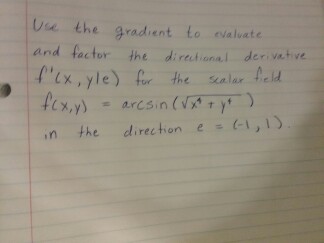 Use the gradient to evaluate
and factor the directional derivative
f'(x, y|e) for the scalar field
f(x,y) = arcsin(√x⁴ + y⁴)
in the direction e = (-1, 1).